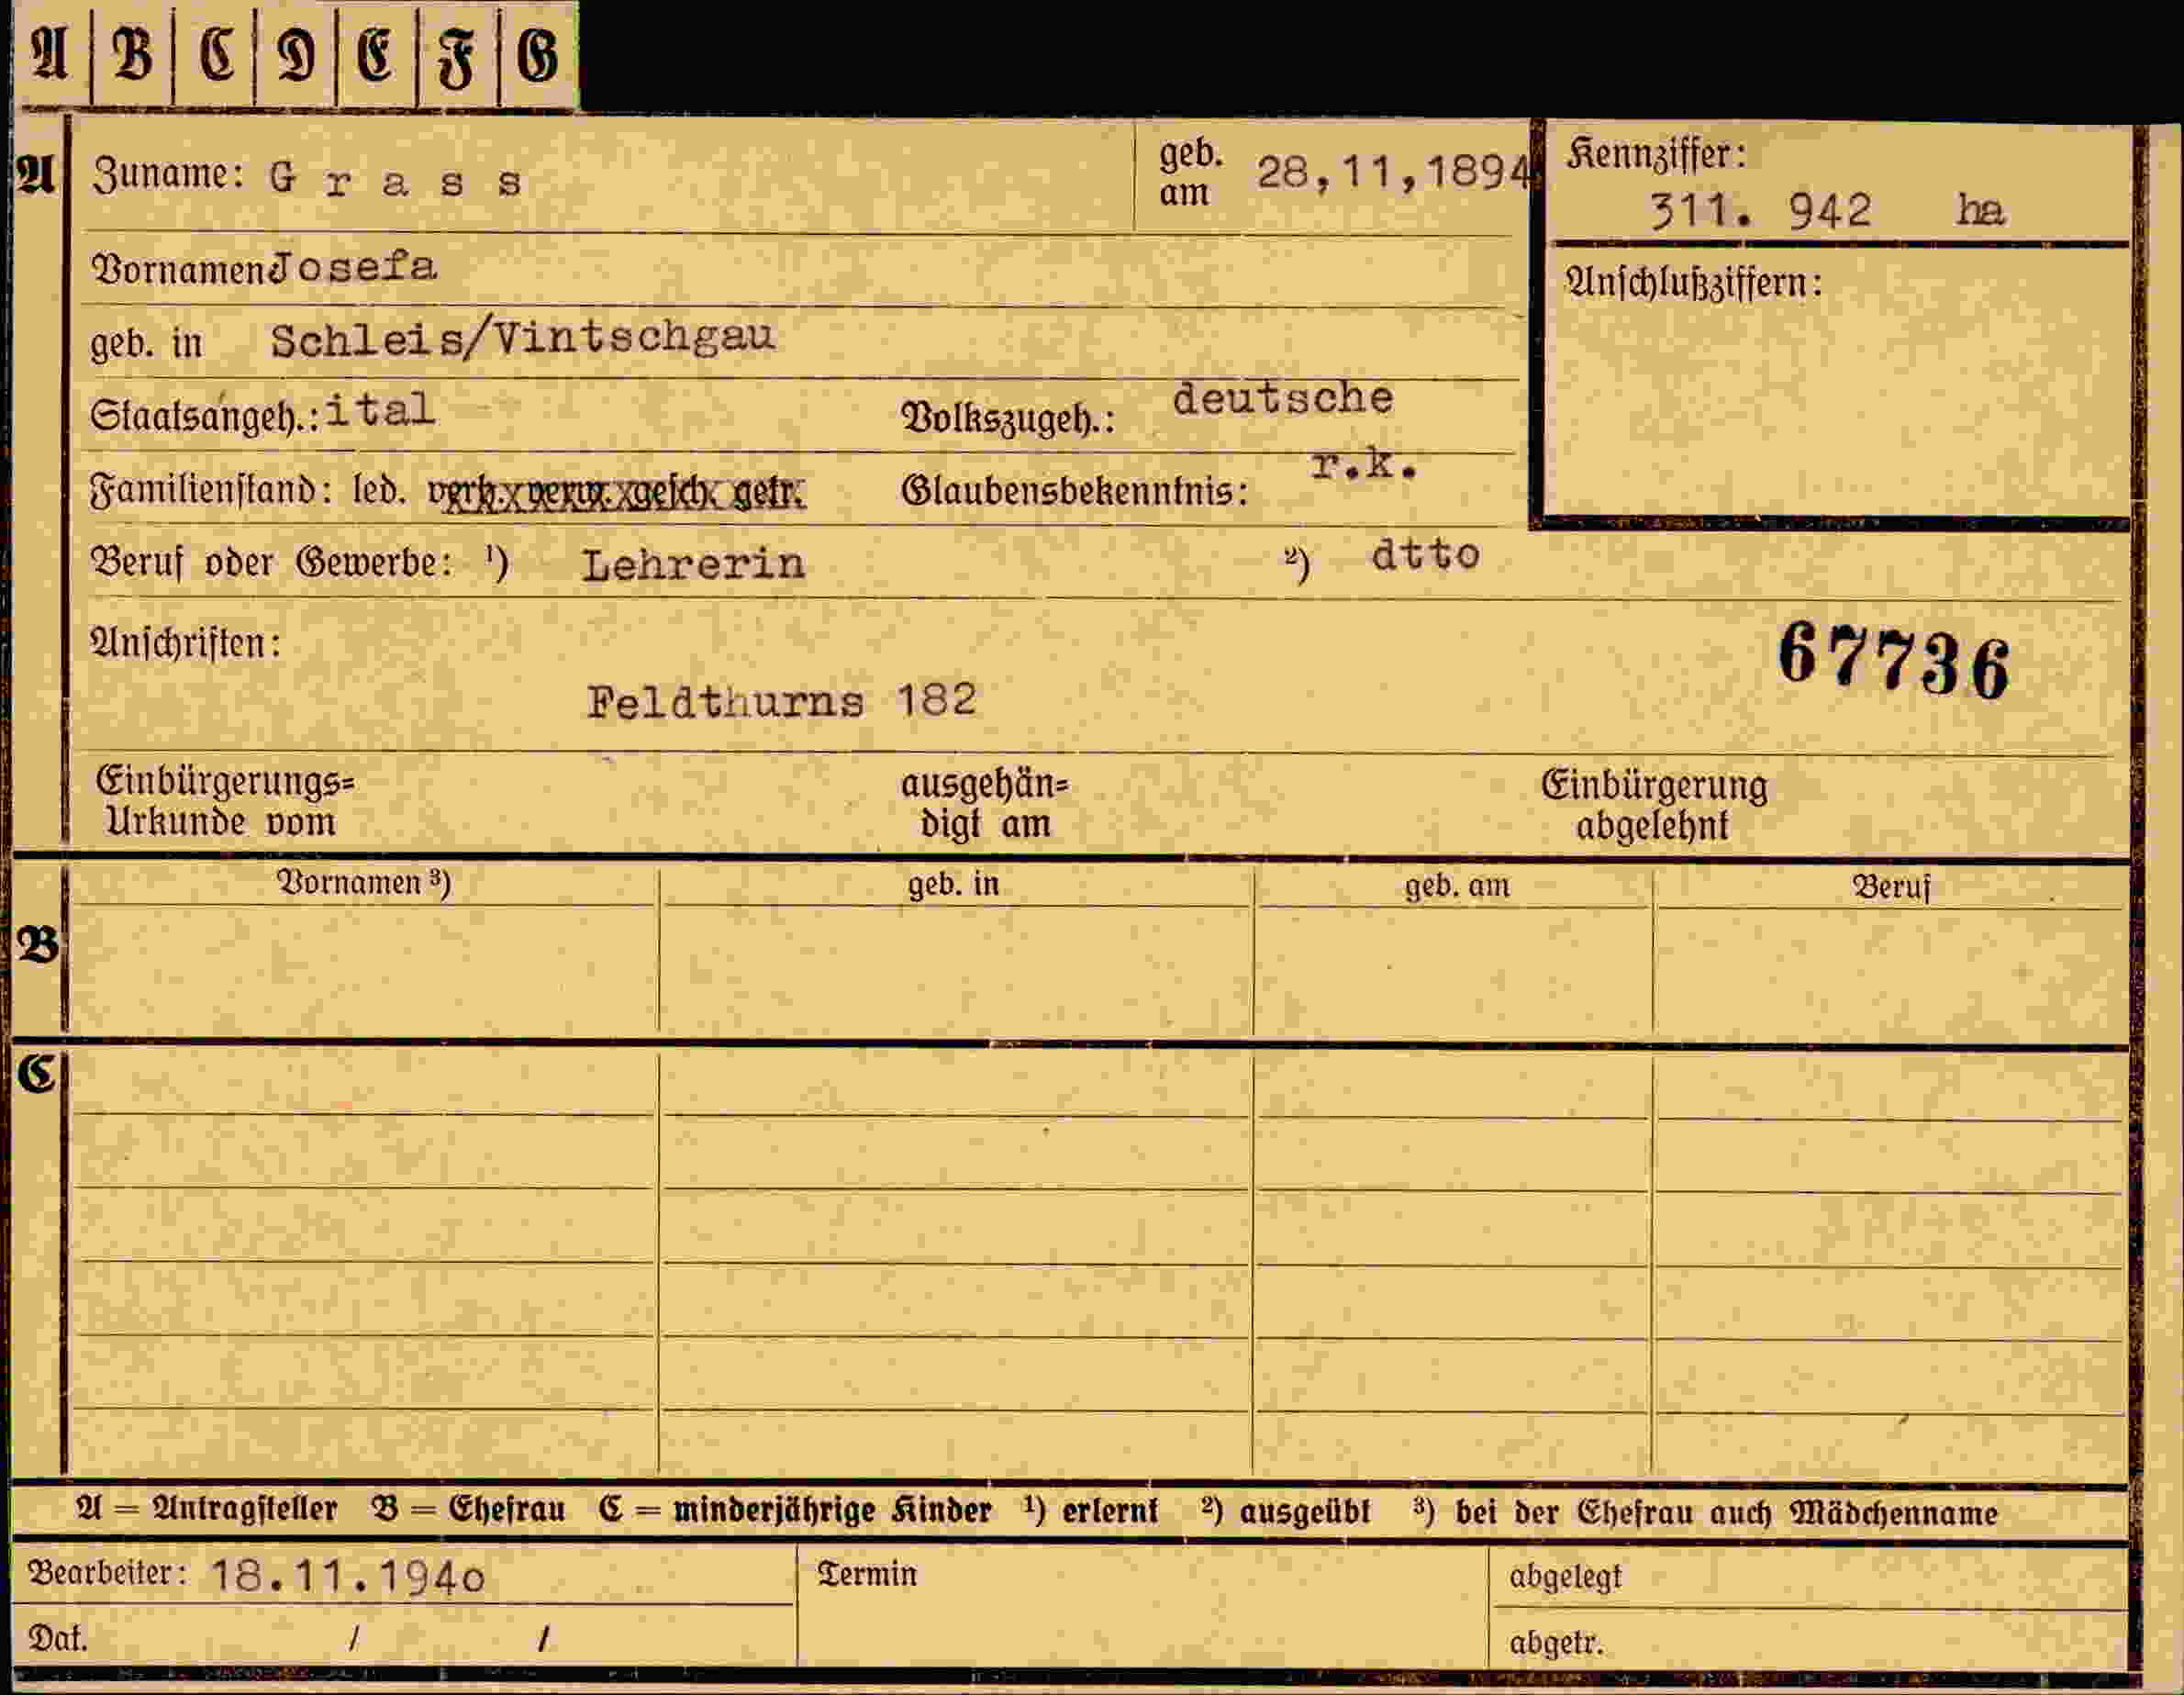 A B C D E F G
A Zuname: G r a s s geb. am 28,11,1894
Kennziffer:
311. 942 ha
Vornamen Josefa
Anschlußziffern:
geb. in Schleis/Vintschgau
Staatsangeh.: ital Volkszugeh.: deutsche
Familienstand: led. verh. verw. gesch. getr. Glaubensbekenntnis: r.k.
Beruf oder Gewerbe: ¹) Lehrerin ²) dtto
Anschriften: 67736
Feldthurns 182
Einbürgerungs= ausgehän= Einbürgerung
Urkunde vom digt am abgelehnt
Vornamen ³) geb. in geb. am Beruf
B
C
A = Antragsteller B = Ehefrau C = minderjährige Kinder ¹) erlernt ²) ausgeübt ³) bei der Ehefrau auch Mädchenname
Bearbeiter: 18.11.194o Termin abgelegt
Dat. / / abgetr.